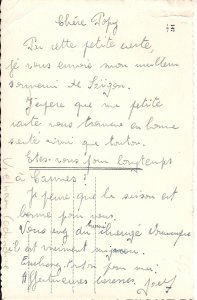 Chère Popy
Par cette petite carte,
je vous envoie mon meilleur
souvenir de Saïgon.
J'espère que ma petite
carte vous trouvera en bonne
santé ainsi que tonton.
Etes-vous pour longtemps
à Cannes ?
Je pense que la saison est
bonne pour vous.
Vous avez du
il est vraiment
Embrassez tonton pour moi.
Affectueuses caresses.